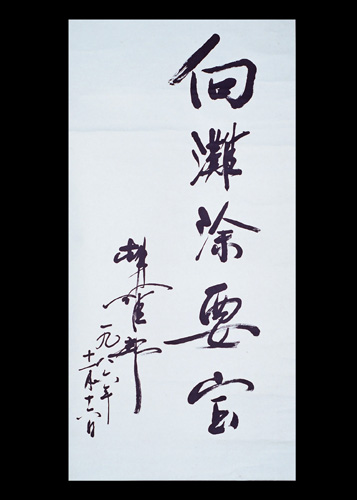 向灘涂要宝
一九八六年
十一月十六日